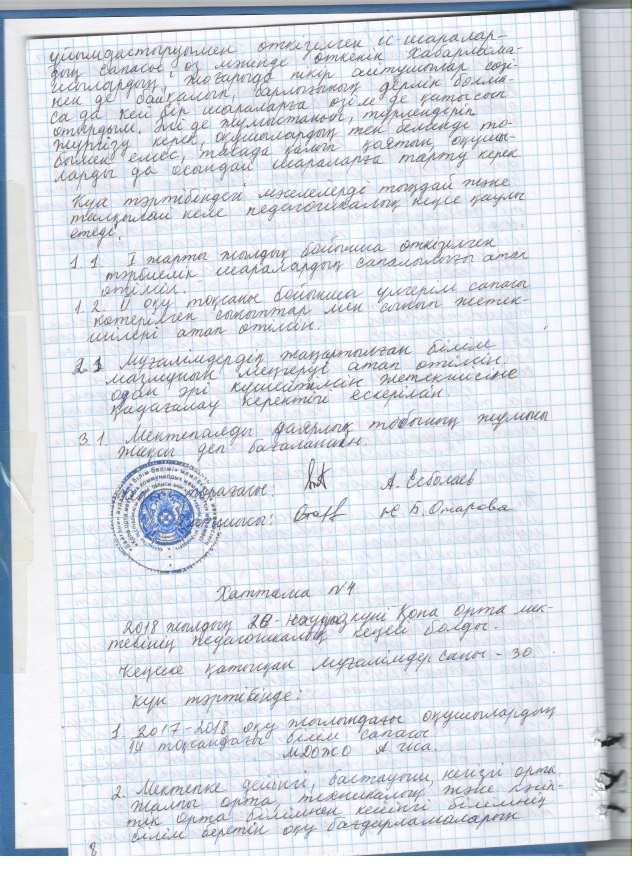 ұйымдастыруымен өткізілген іс-шаралар-
дың сапасы өз мәнінде өткенін Хабарлама-
шылардың, жоғарыда пікір айтушылар сөзі-
нен де байқалып, барлығының дерлік болма-
са да кей бір шараларға өзім де қатысып
отырдым. Әлі де жұмыстанып, түрлендіріп
жүргізу керек, оқушылардың тек белсенді то-
бымен емес, тасада қалып қоятын оқушы-
ларды да осындай шараларға тарту керек
Күн тәртібіндегі мәселелерді тыңдай және
талқылай келе педагогикалық кеңес қаулы
етеді.
1.1. I жарты жылдық бойынша өткізілген
тәрбиелік шаралардың сапалылығы атап
өтілсін.
1.2. II оқу тоқсаны бойынша үлгерім сапасы
көтерілген сыныптар мен сынып жетек-
шілері атап өтілсін.
2.1 Мұғалімдердің жаңартылған білім
мазмұнын меңгеруі атап өтілсін.
одан әрі күшейтілан жетекшісіне
қадағалау керектігі ескерілсін.
3.1. Мектепалды даярлық тобының жұмысы
жақсы деп бағалансын.
төрағасы: А. Есболаев
хатшысы: Б. Омарова
Хаттама №4
2018 жылдың 28-наурыз күні Қопа орта мек-
тебінің педагогикалық кеңесі болды.
Кеңеске қатысқан мұғалімдер саны - 30
Күн тәртібінде:
1. 2017-2018 оқу жылындағы оқушылардың
III тоқсандағы білім сапасы
МДОЖО А
2. Мектепке дейінгі, бастауыш, негізгі орта
жалпы орта, техникалық және кәсіп-
тік орта білімнен кейінгі білімнің
білім беретін оқу бағдарламаларын
8